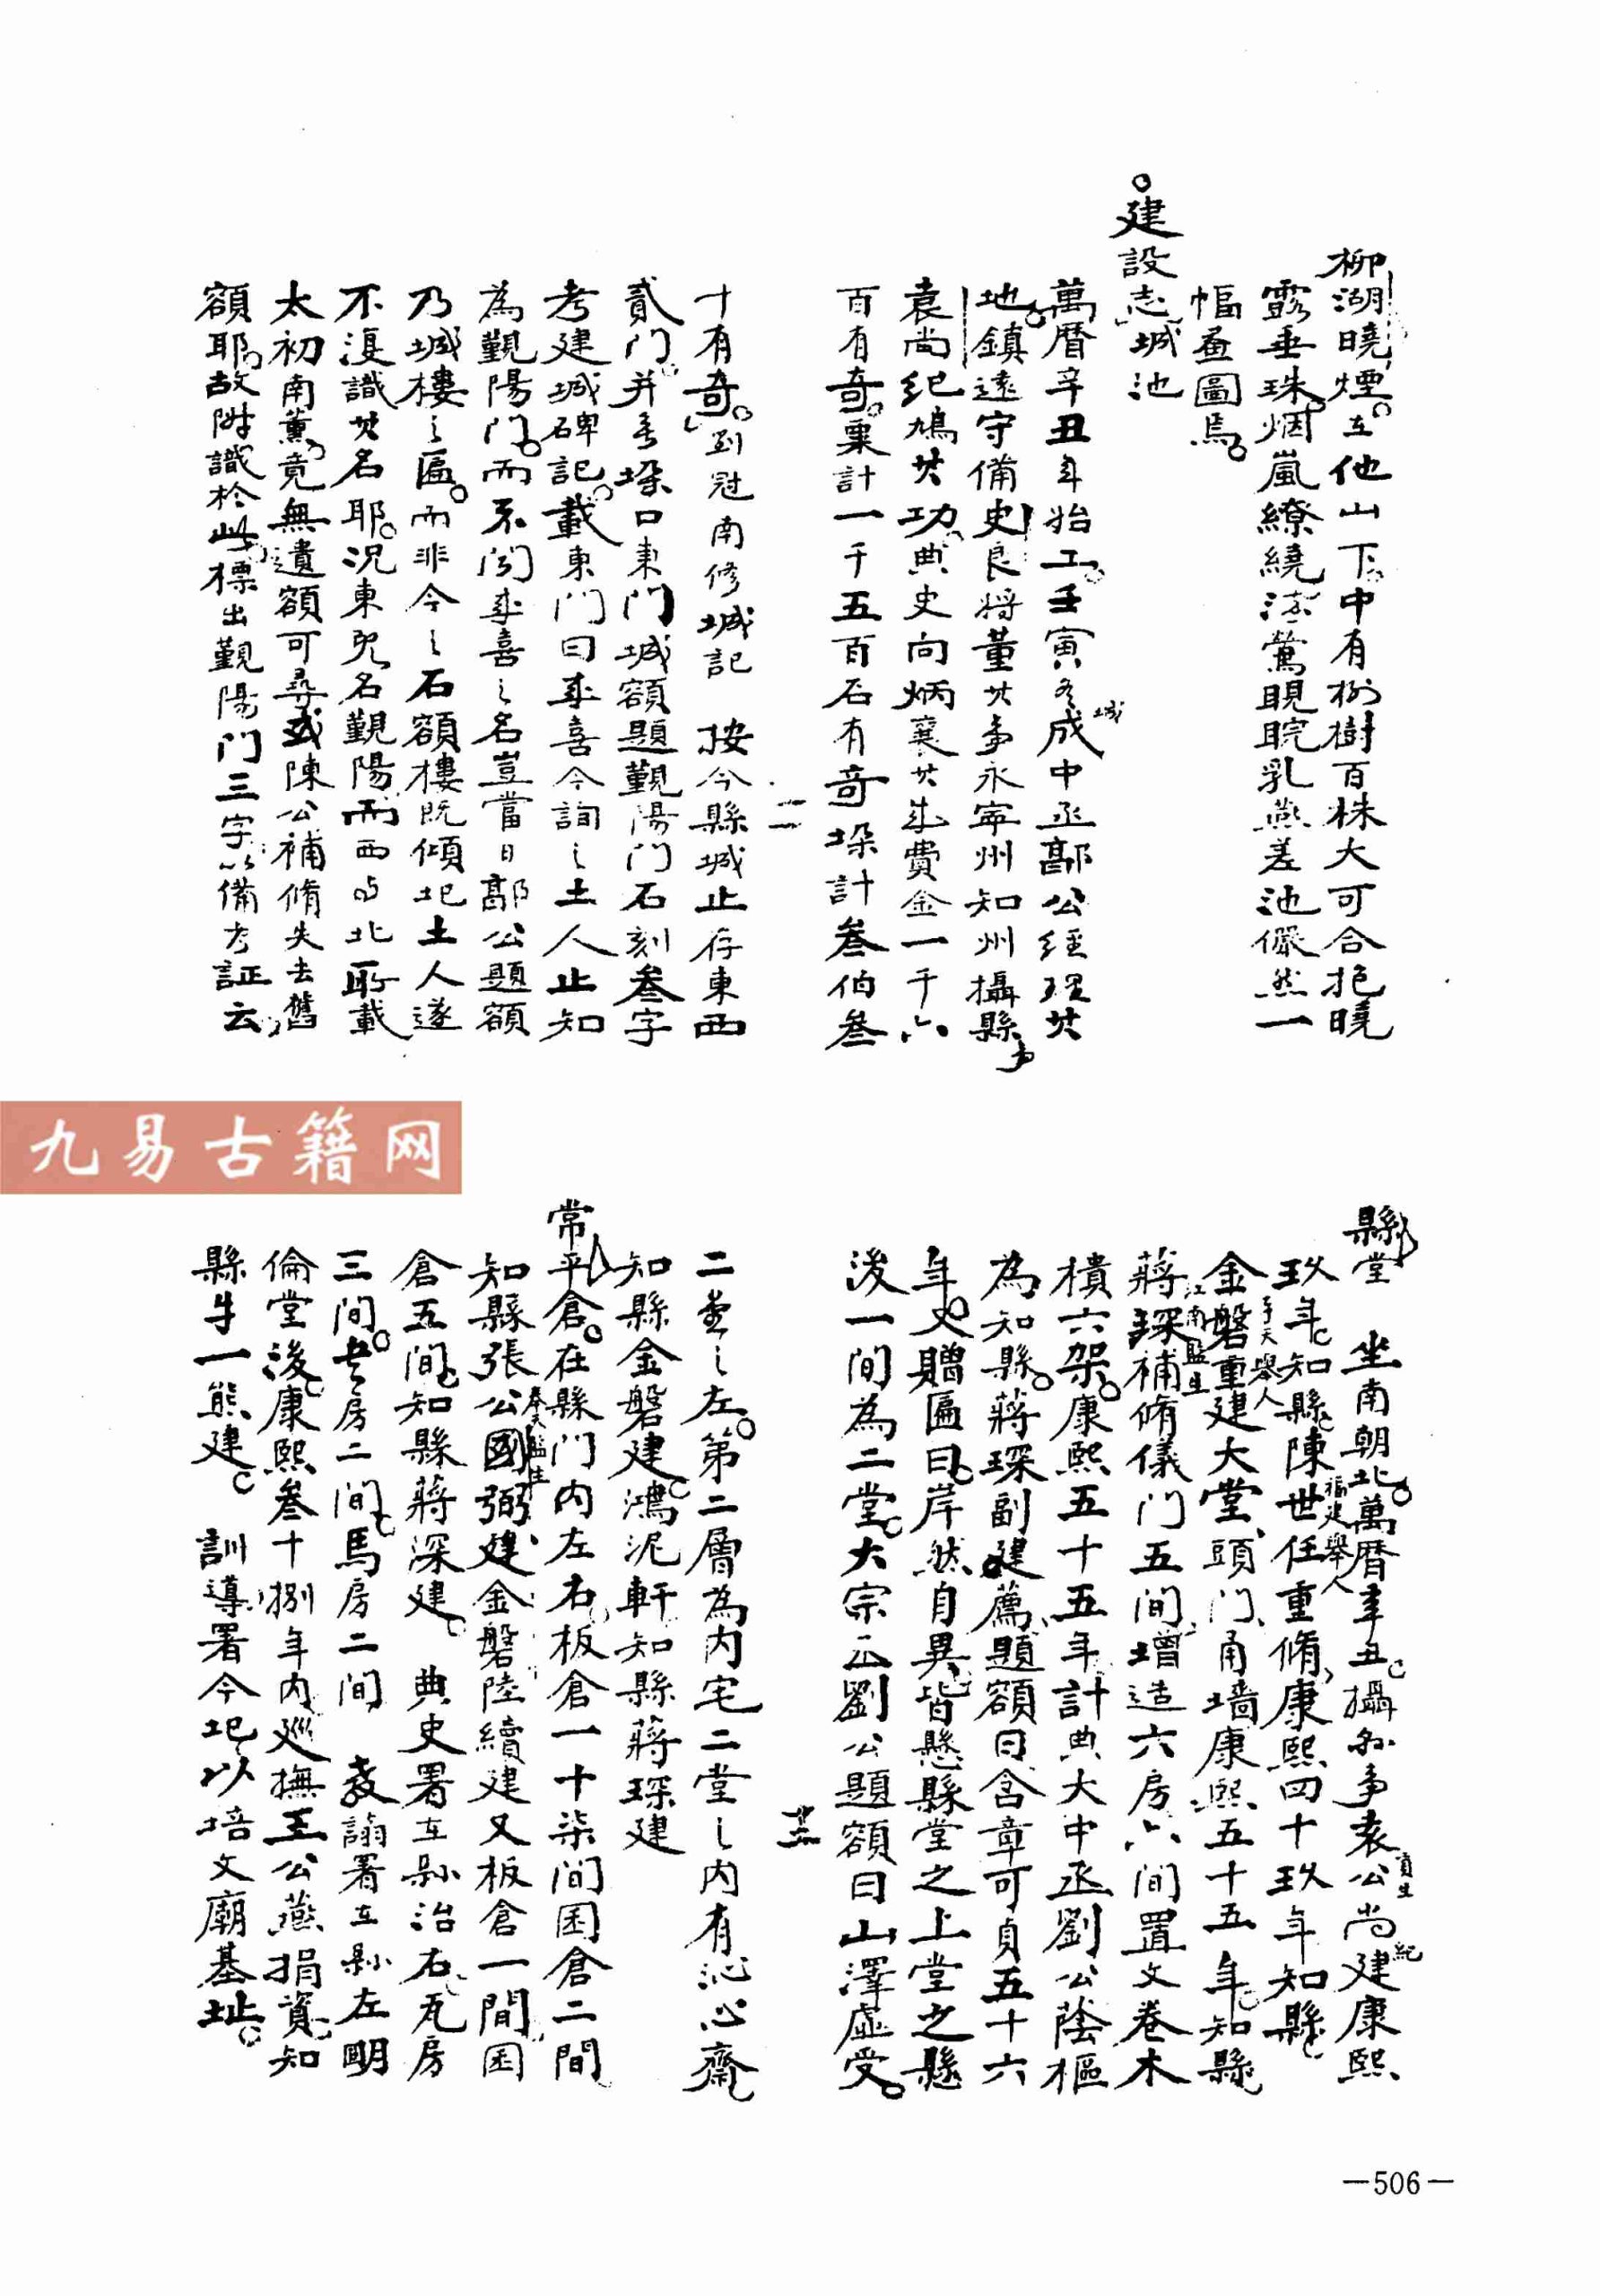 柳湖曉煙在他山下中有柳樹百株大可合抱曉
露垂珠烟嵐繚繞流鶯睍睆乳燕差池儼然一
幅畫圖焉
建設志城池
萬曆辛丑年始工壬寅冬城成中丞郭公經理其
地鎮遠守備史良将董其事永寧州知州攝縣事
袁尚纪鳩其功典史向炳襄其成費金一千六
百有奇粟計一千五百石有奇垛計叁伯叁
十有奇劉冠南修城記 按今縣城止存東西
貳門并無垛口東门城額題覲陽门石刻叁字
考建城碑記載東门曰来喜今詢之土人止知
為覲陽门而不闻来喜之名豈當日郭公題額
乃城樓之匾而非今之石額樓既傾圮土人遂
不復識其名耶况東既名覲陽而西与北所載
太初南薰竟無遺額可尋或陳公補脩失去舊
額耶故附識於此標出覲陽门三字以備考証云
二
縣堂 坐南朝北萬曆辛丑攝縣事袁公貢生尚紀建康熙
玖年知縣陳世任福建舉人重脩康熙四十玖年知縣
金磐奉天舉人重建大堂頭门甬墙康熙五十五年知縣
蔣琛江南監生補脩儀门五间增造六房六间置文卷木
樻六架康熙五十五年計典大中丞劉公蔭樞
為知縣蔣琛副建薦題額曰含章可貞五十六
年又贈匾曰岸然自異皆懸縣堂之上堂之縣
後一间為二堂大宗正劉公題額曰山澤虛受
二堂之左第二層為内宅二堂之内有沁心齋
知縣金磐建鴻泥軒知縣蔣琛建
常平倉在縣门内左右板倉一十柒间囷倉二間
知縣張公國弼奉天監生建金磐陸續建又板倉一間囷
倉五间知縣蔣深建 典史署在縣治右瓦房
三间书房二间馬房二间 教諭署在縣左明
倫堂後康熙叁十捌年内巡撫王公燕捐資知
縣牛一熊建 訓導署今圮以培文廟基址
九易古籍网
—506—